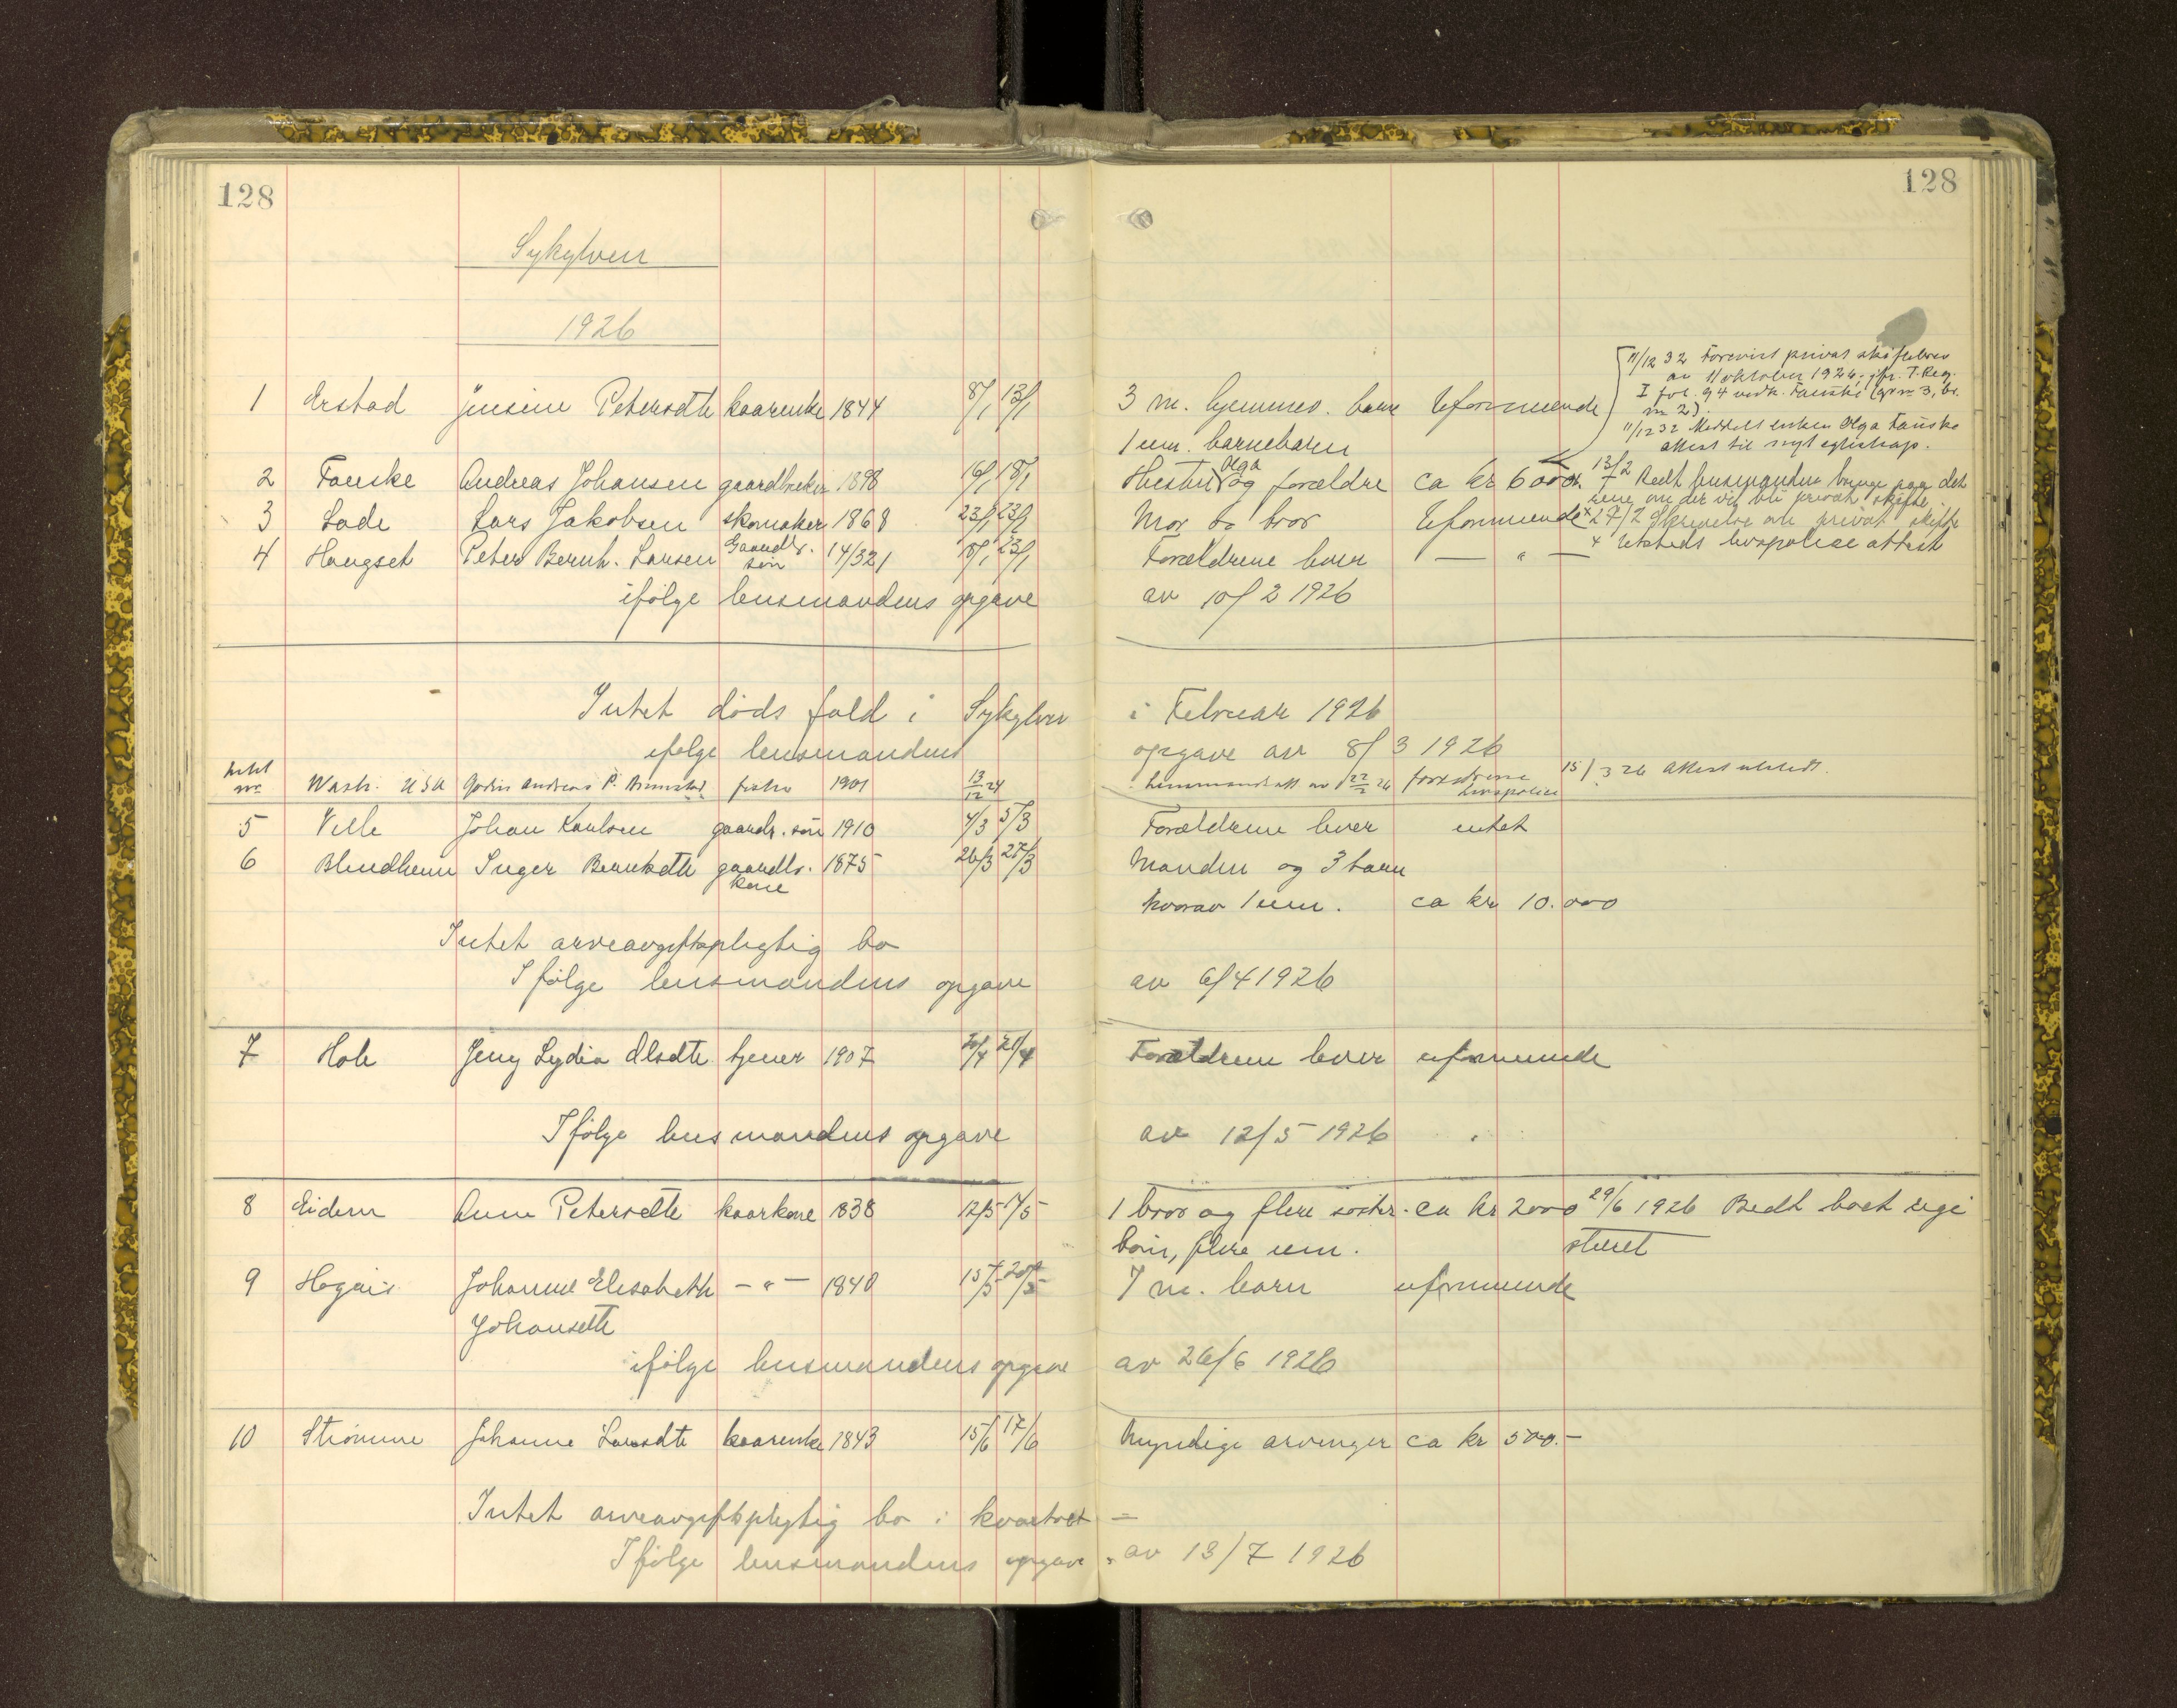 128
128
Sykylven
1926
11/12 32 Forevist privat skiftebrev
av 11 oktober 1926, jfr. T. Reg.
I fol. 94 vedk. Fauske (gr.nr. 3, br.
nr 2).
11/12 32 Meddelt enken Olga Fauske
attest til nyt egteskap.
1 Erstad Jensine Petersdtr kaarenke 1844 8/1 13/1 3 m. hjemmev. barn Uformuende
1 um. barnebarn
2 Fauske Andreas Johansen gaardbruker 1898 16/1 18/1 Hustru Olga og forældre ca kr 6000. 13/2 Bedt lensmanden bringe paa det
rene om der vil bli privat skifte
3 Lade Lars Jakobsen skomaker 1868 23/1 23/1 Mor og bror Uformuende x 27/2 Skrivelse om privat skifte
4 Haugset Peter Bernh. Larsen Gaardbr. søn 14/3 21 8/1 23/1 Forældrene lever — " — x Utstedt livspolise attest
ifølge lensmandens opgave av 10/2 1926
Intet døds fald i Sykylven i Februar 1926
ifølge lensmandens opgave av 8/3 1926
Wash. USA Andreas P. fisker 1901 13/12 24 Lensmandsatt av 22/2 26 forældrene livspolise 15/3 26 Attest utstedt.
5 Velle Johan Karlsen gaardbr. søn 1910 4/3 5/3 Forældrene lever intet
6 Blindheim Inger Berntsdtr gaardbr. kone 1875 26/3 27/3 Manden og 3 barn
hvorav 1 um. ca kr 10.000
Intet arveavgiftspligtig bo
Ifølge lensmandens opgave av 6/4 1926
7 Hole Jeny Lydia Olsdtr tjener 1907 20/4 21/4 Forældrene lever uformuende
Ifølge lensmandens opgave av 12/5 1926
8 Eidem Anne Petersdtr kaarkone 1838 12/5 17/5 1 bror og flere søster- ca kr 2000 29/6 1926 Bedt boet regi
børn, flere um. streret
9 Johanne Elisabeth — " — 1840 15/5 20/5 7 m. barn uformuende
Johansdtr
ifølge lensmandens opgave av 26/6 1926
10 Strømme Johanne Larsdtr kaarenke 1843 15/6 17/6 Myndige arvinger ca kr 500.-
Intet arveavgiftspligtig bo i kvartalet —
Ifølge lensmandens opgave av 13/7 1926